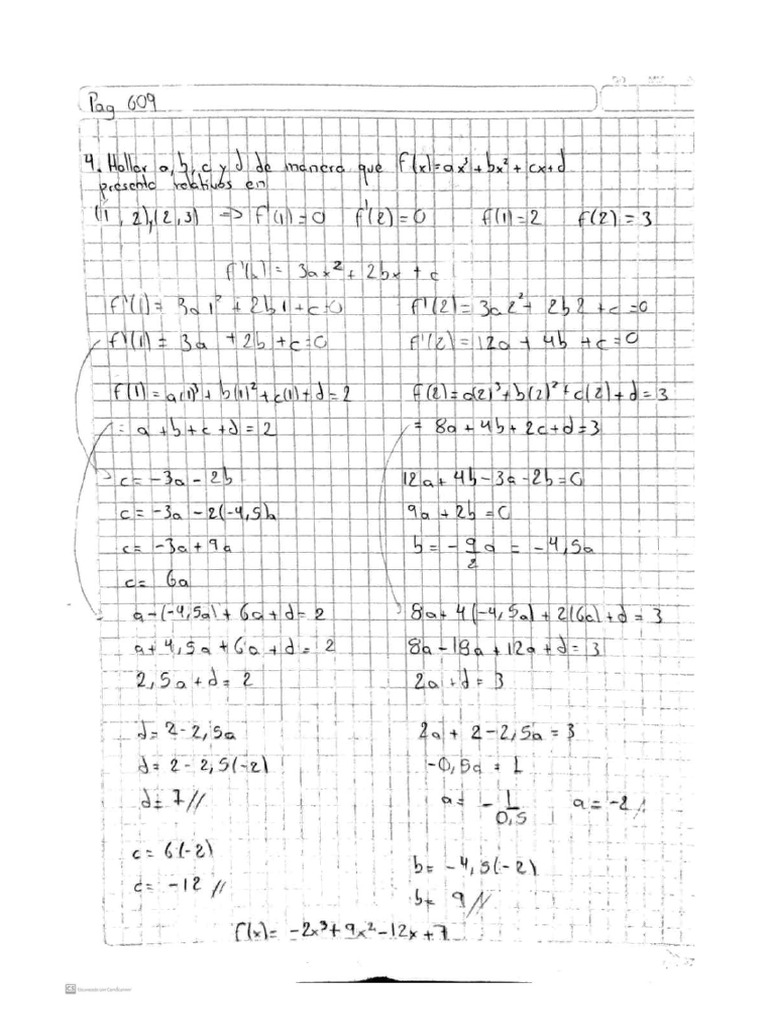 Pag 609
4. Hallar a, b, c y d de manera que f(x)=ax³+bx²+cx+d
presente relativos en
(1,2),(2,3) => f'(1)=0 f'(2)=0 f(1)=2 f(2)=3
f'(x)= 3ax²+2bx+c
f'(1)= 3a1²+2b1+c=0 f'(2)=3a2²+2b2+c=0
f'(1)= 3a+2b+c=0 f'(2)=12a+4b+c=0
f(1)=a(1)³+b(1)²+c(1)+d=2 f(2)=a(2)³+b(2)²+c(2)+d=3
= a+b+c+d=2 = 8a+4b+2c+d=3
c=-3a-2b 12a+4b-3a-2b=0
c=-3a-2(-4,5)a 9a+2b=0
c=-3a+9a b=-9/2 a=-4,5a
c= 6a
a-(-4,5a)+6a+d=2 8a+4(-4,5a)+2(6a)+d=3
a+4,5a+6a+d=2 8a-18a+12a+d=3
2,5a+d=2 2a+d=3
d=2-2,5a 2a+2-2,5a=3
d=2-2,5(-2) -0,5a=1
d=7// a=-1/0,5 a=-2//
c=6(-2) b=-4,5(-2)
c=-12// b=9//
f(x)=-2x³+9x²-12x+7
CS